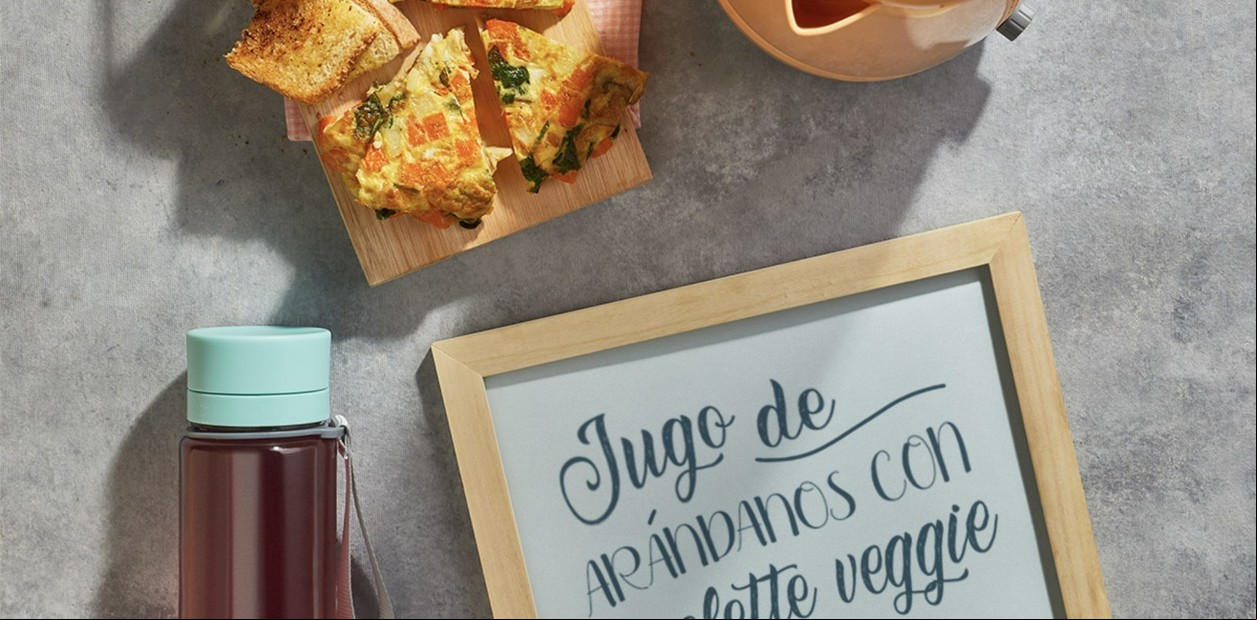 Jugo de
ARÁNDANOS CON
veggie